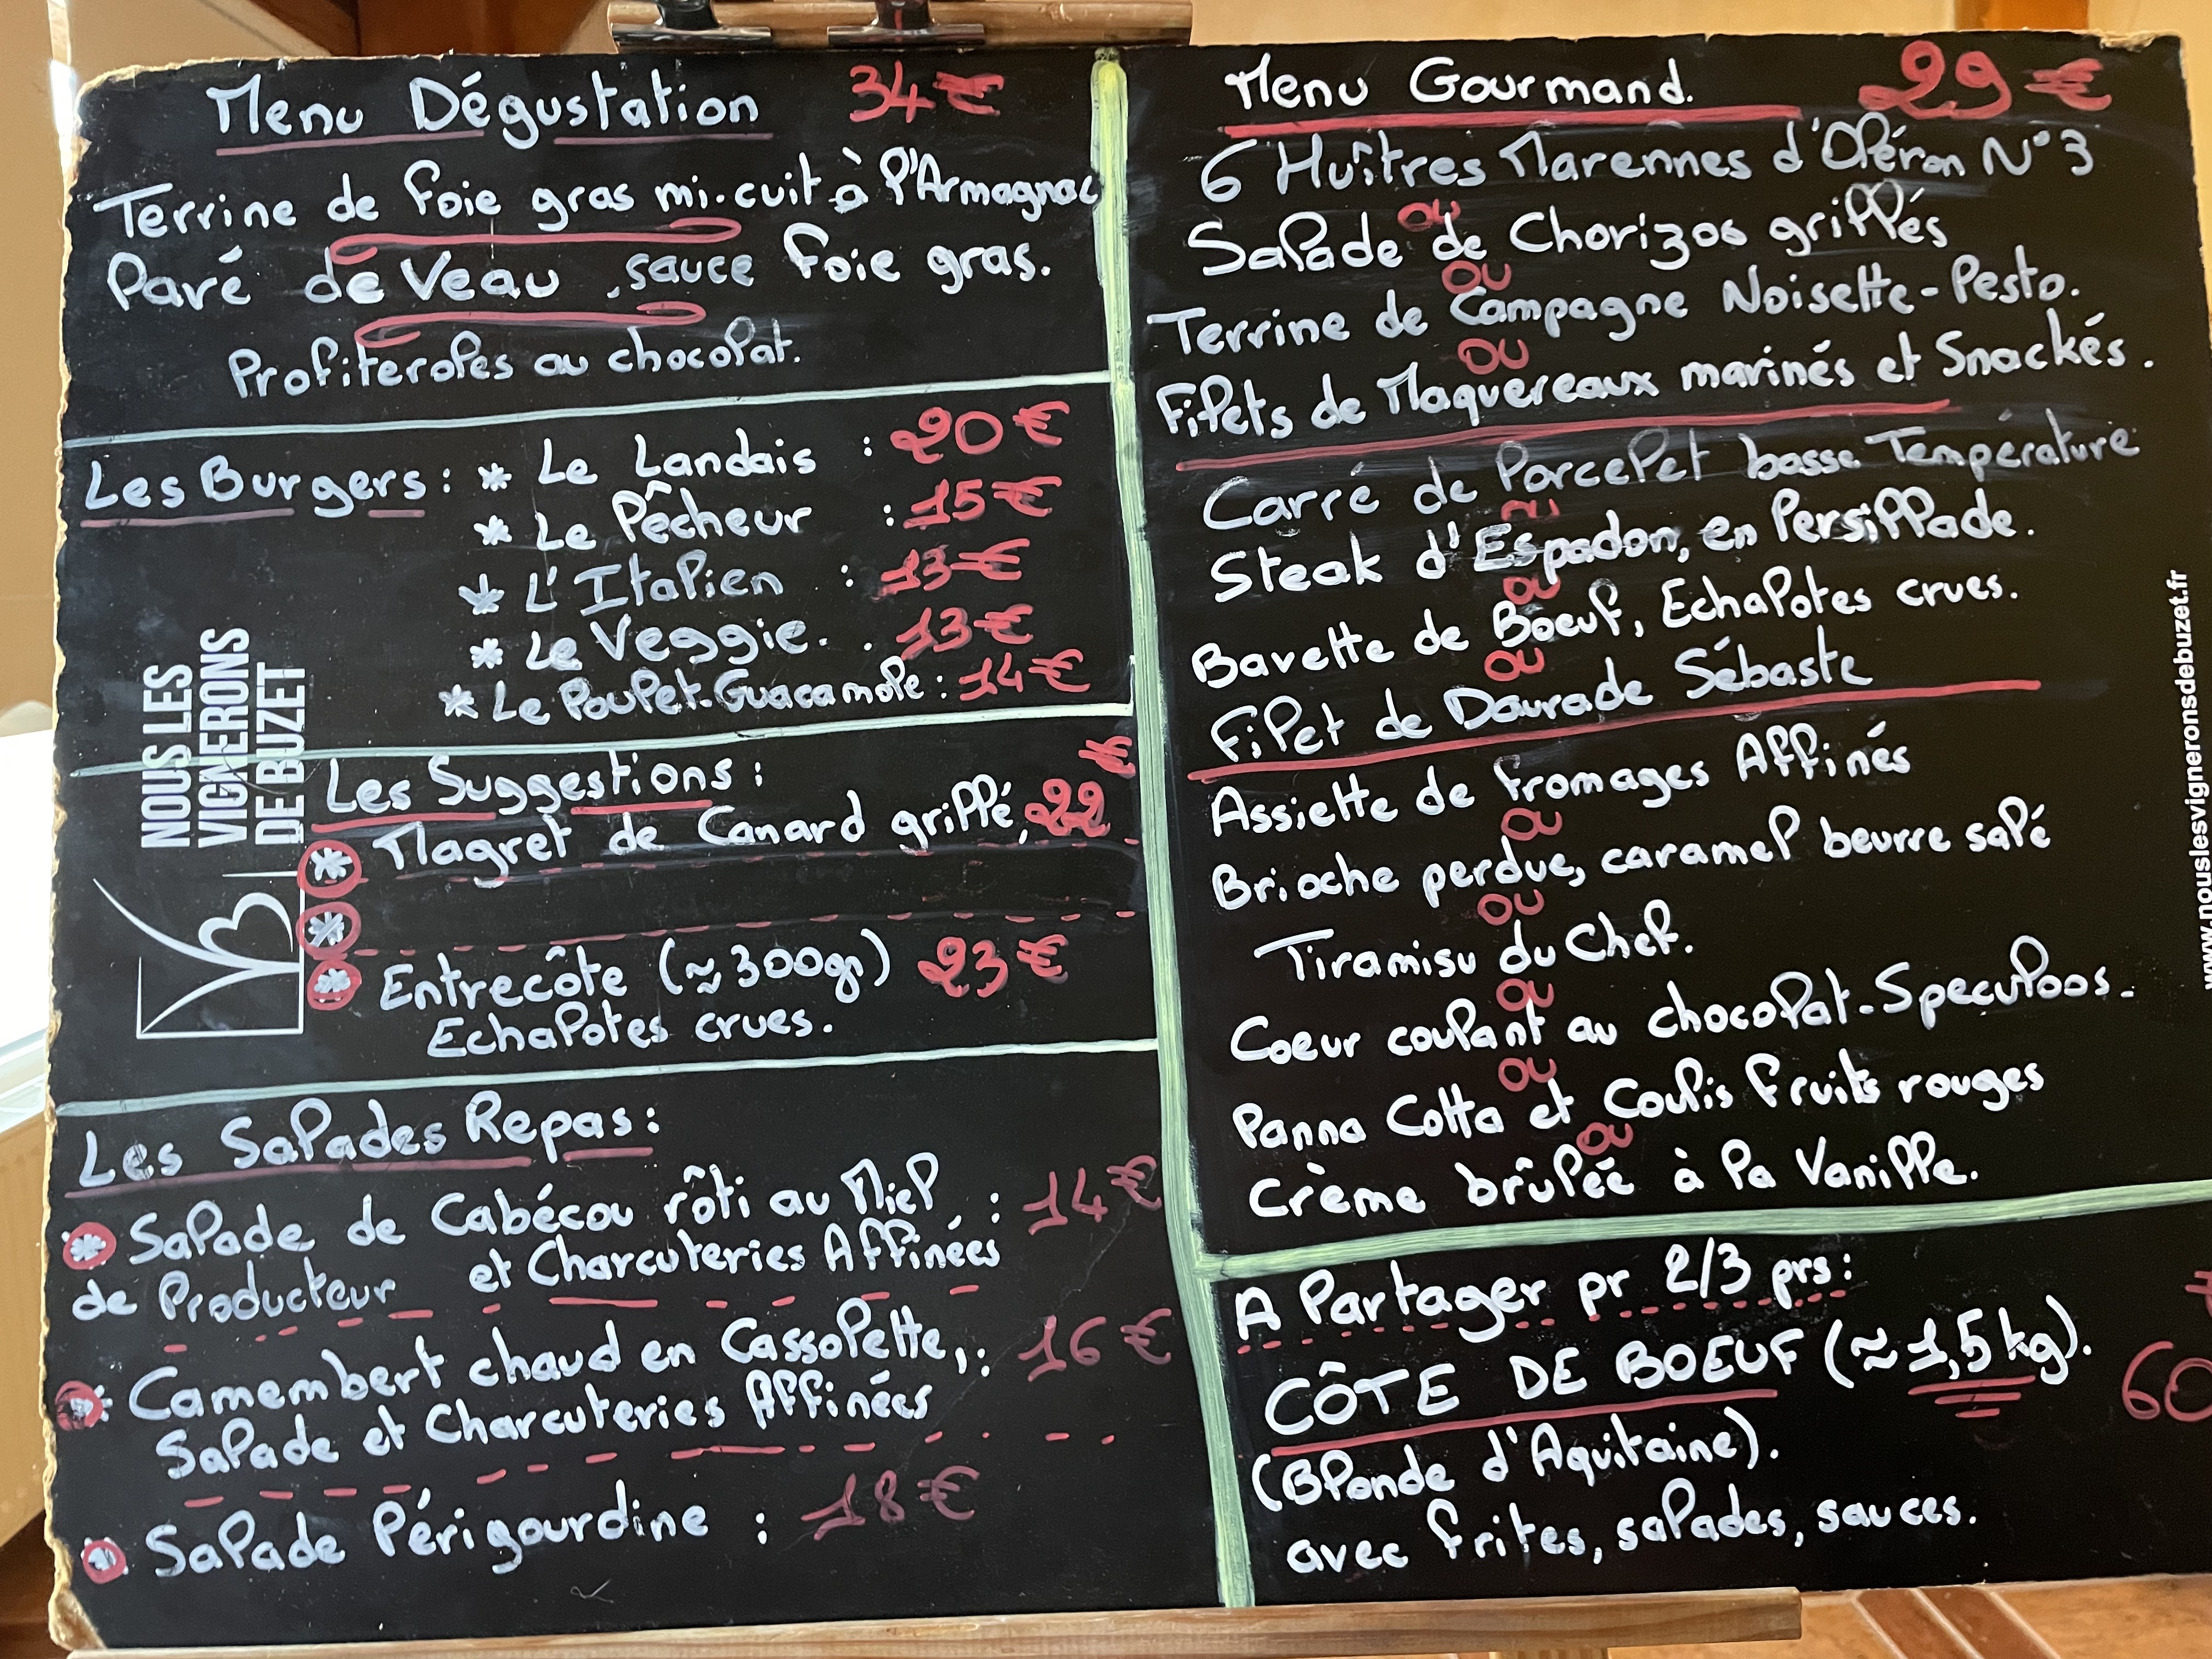 Menu Dégustation 34€
Terrine de foie gras mi-cuit à l'Armagnac
Pavé de Veau, sauce foie gras.
Profiteroles au chocolat.
Les Burgers : * Le Landais : 20€
* Le Pêcheur : 15€
* L'Italien : 13€
* Le Veggie. : 13€
* Le Poulet-Guacamole : 14€
NOUS LES
VIGNERONS
DE BUZET
Les Suggestions :
* Magret de Canard grillé, 22€
*
* Entrecôte (≈300gr) 23€
Echalotes crues.
Les Salades Repas :
* Salade de Cabécou rôti au Miel : 14€
de Producteur et Charcuteries Affinées
* Camembert chaud en Cassolette, : 16€
Salade et Charcuteries Affinées
* Salade Périgourdine : 18€
Menu Gourmand. 29€
6 Huîtres Marennes d'Oléron N°3
ou
Salade de Chorizos grillés
ou
Terrine de Campagne Noisette-Pesto.
ou
Filets de Maquereaux marinés et Snackés.
Carré de Porcelet basse Température
ou
Steak d'Espadon, en Persillade.
ou
Bavette de Boeuf, Echalotes crues.
ou
Filet de Daurade Sébaste
Assiette de fromages Affinés
ou
Brioche perdue, caramel beurre salé
ou
Tiramisu du Chef.
ou
Coeur coulant au chocolat-Speculoos.
ou
Panna Cotta et Coulis fruits rouges
ou
Crème brûlée à la Vanille.
A Partager pr 2/3 prs :
CÔTE DE BOEUF (≈1,5kg). 60
(Blonde d'Aquitaine).
avec frites, salades, sauces.
www.nouslesvigneronsdebuzet.fr